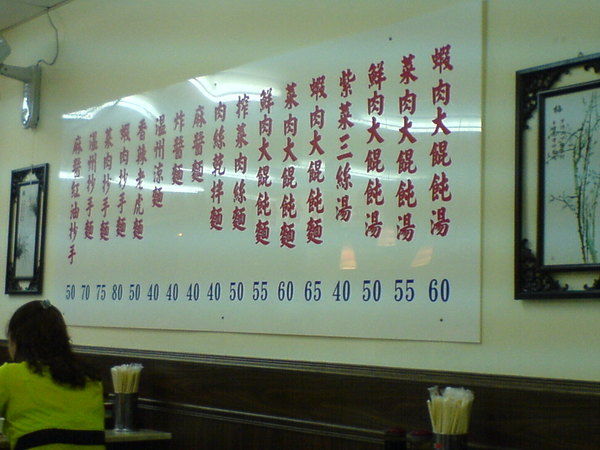 蝦肉大餛飩湯 60
菜肉大餛飩湯 55
鮮肉大餛飩湯 50
紫菜三絲湯 40
蝦肉大餛飩麵 65
菜肉大餛飩麵 60
鮮肉大餛飩麵 55
榨菜肉絲麵 50
肉絲乾拌麵 40
麻醬麵 40
炸醬麵 40
溫州涼麵 40
香辣老虎麵 50
蝦肉抄手麵 80
菜肉抄手麵 75
溫州抄手麵 70
麻醬紅油抄手 50